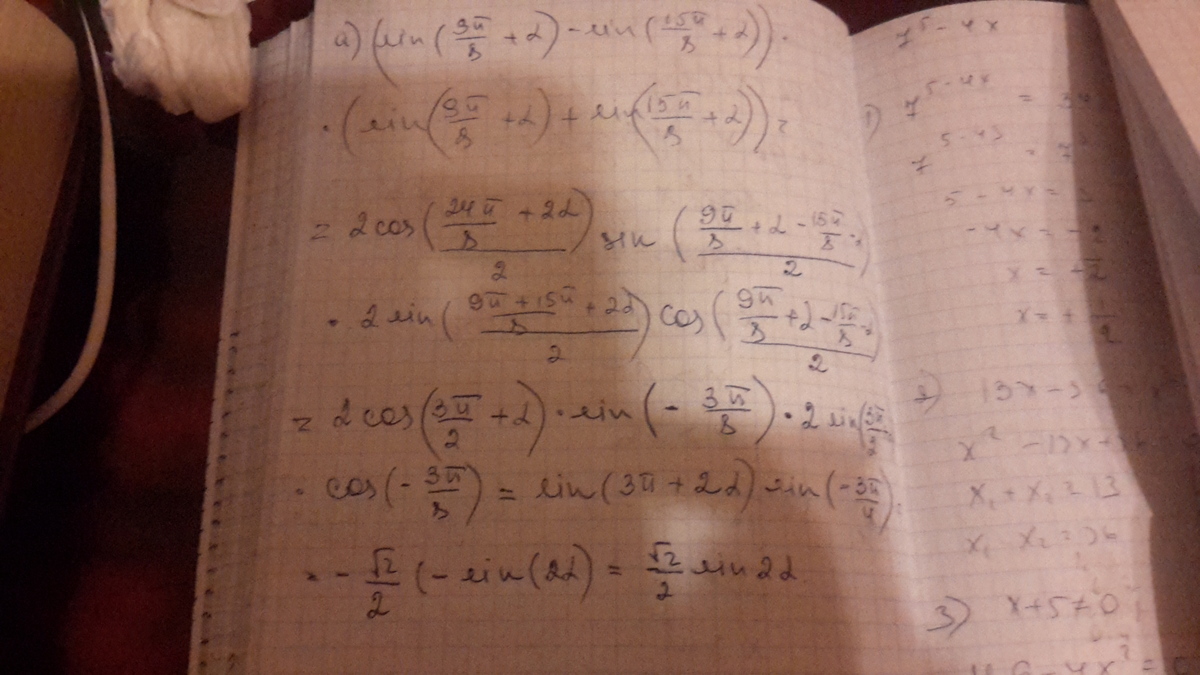 а) (sin(9π/8 + α) - sin(15π/8 + α)) ·
· (sin(9π/8 + α) + sin(15π/8 + α)) =
= 2cos((24π/8 + 2α)/2) sin((9π/8 + α - 15π/8 - α)/2)
· 2sin(((9π + 15π)/8 + 2α)/2) cos((9π/8 + α - 15π/8 - α)/2)
= 2cos(3π/2 + α) · sin(- 3π/8) · 2sin(3π/2
· cos(- 3π/8) = sin(3π + 2α) sin(-3π/4) =
= - √2/2 (- sin(2α) = √2/2 sin2α
7^5-4x
1) 7^5-4x =
7^5-4x = 7
5 - 4x =
-4x = -2
x =
x = + 1/2
2) 13x -
x² - 13x +
x₁ + x₂ = 13
x₁ x₂ = 36
3) x + 5 ≠ 0
- 4x² =